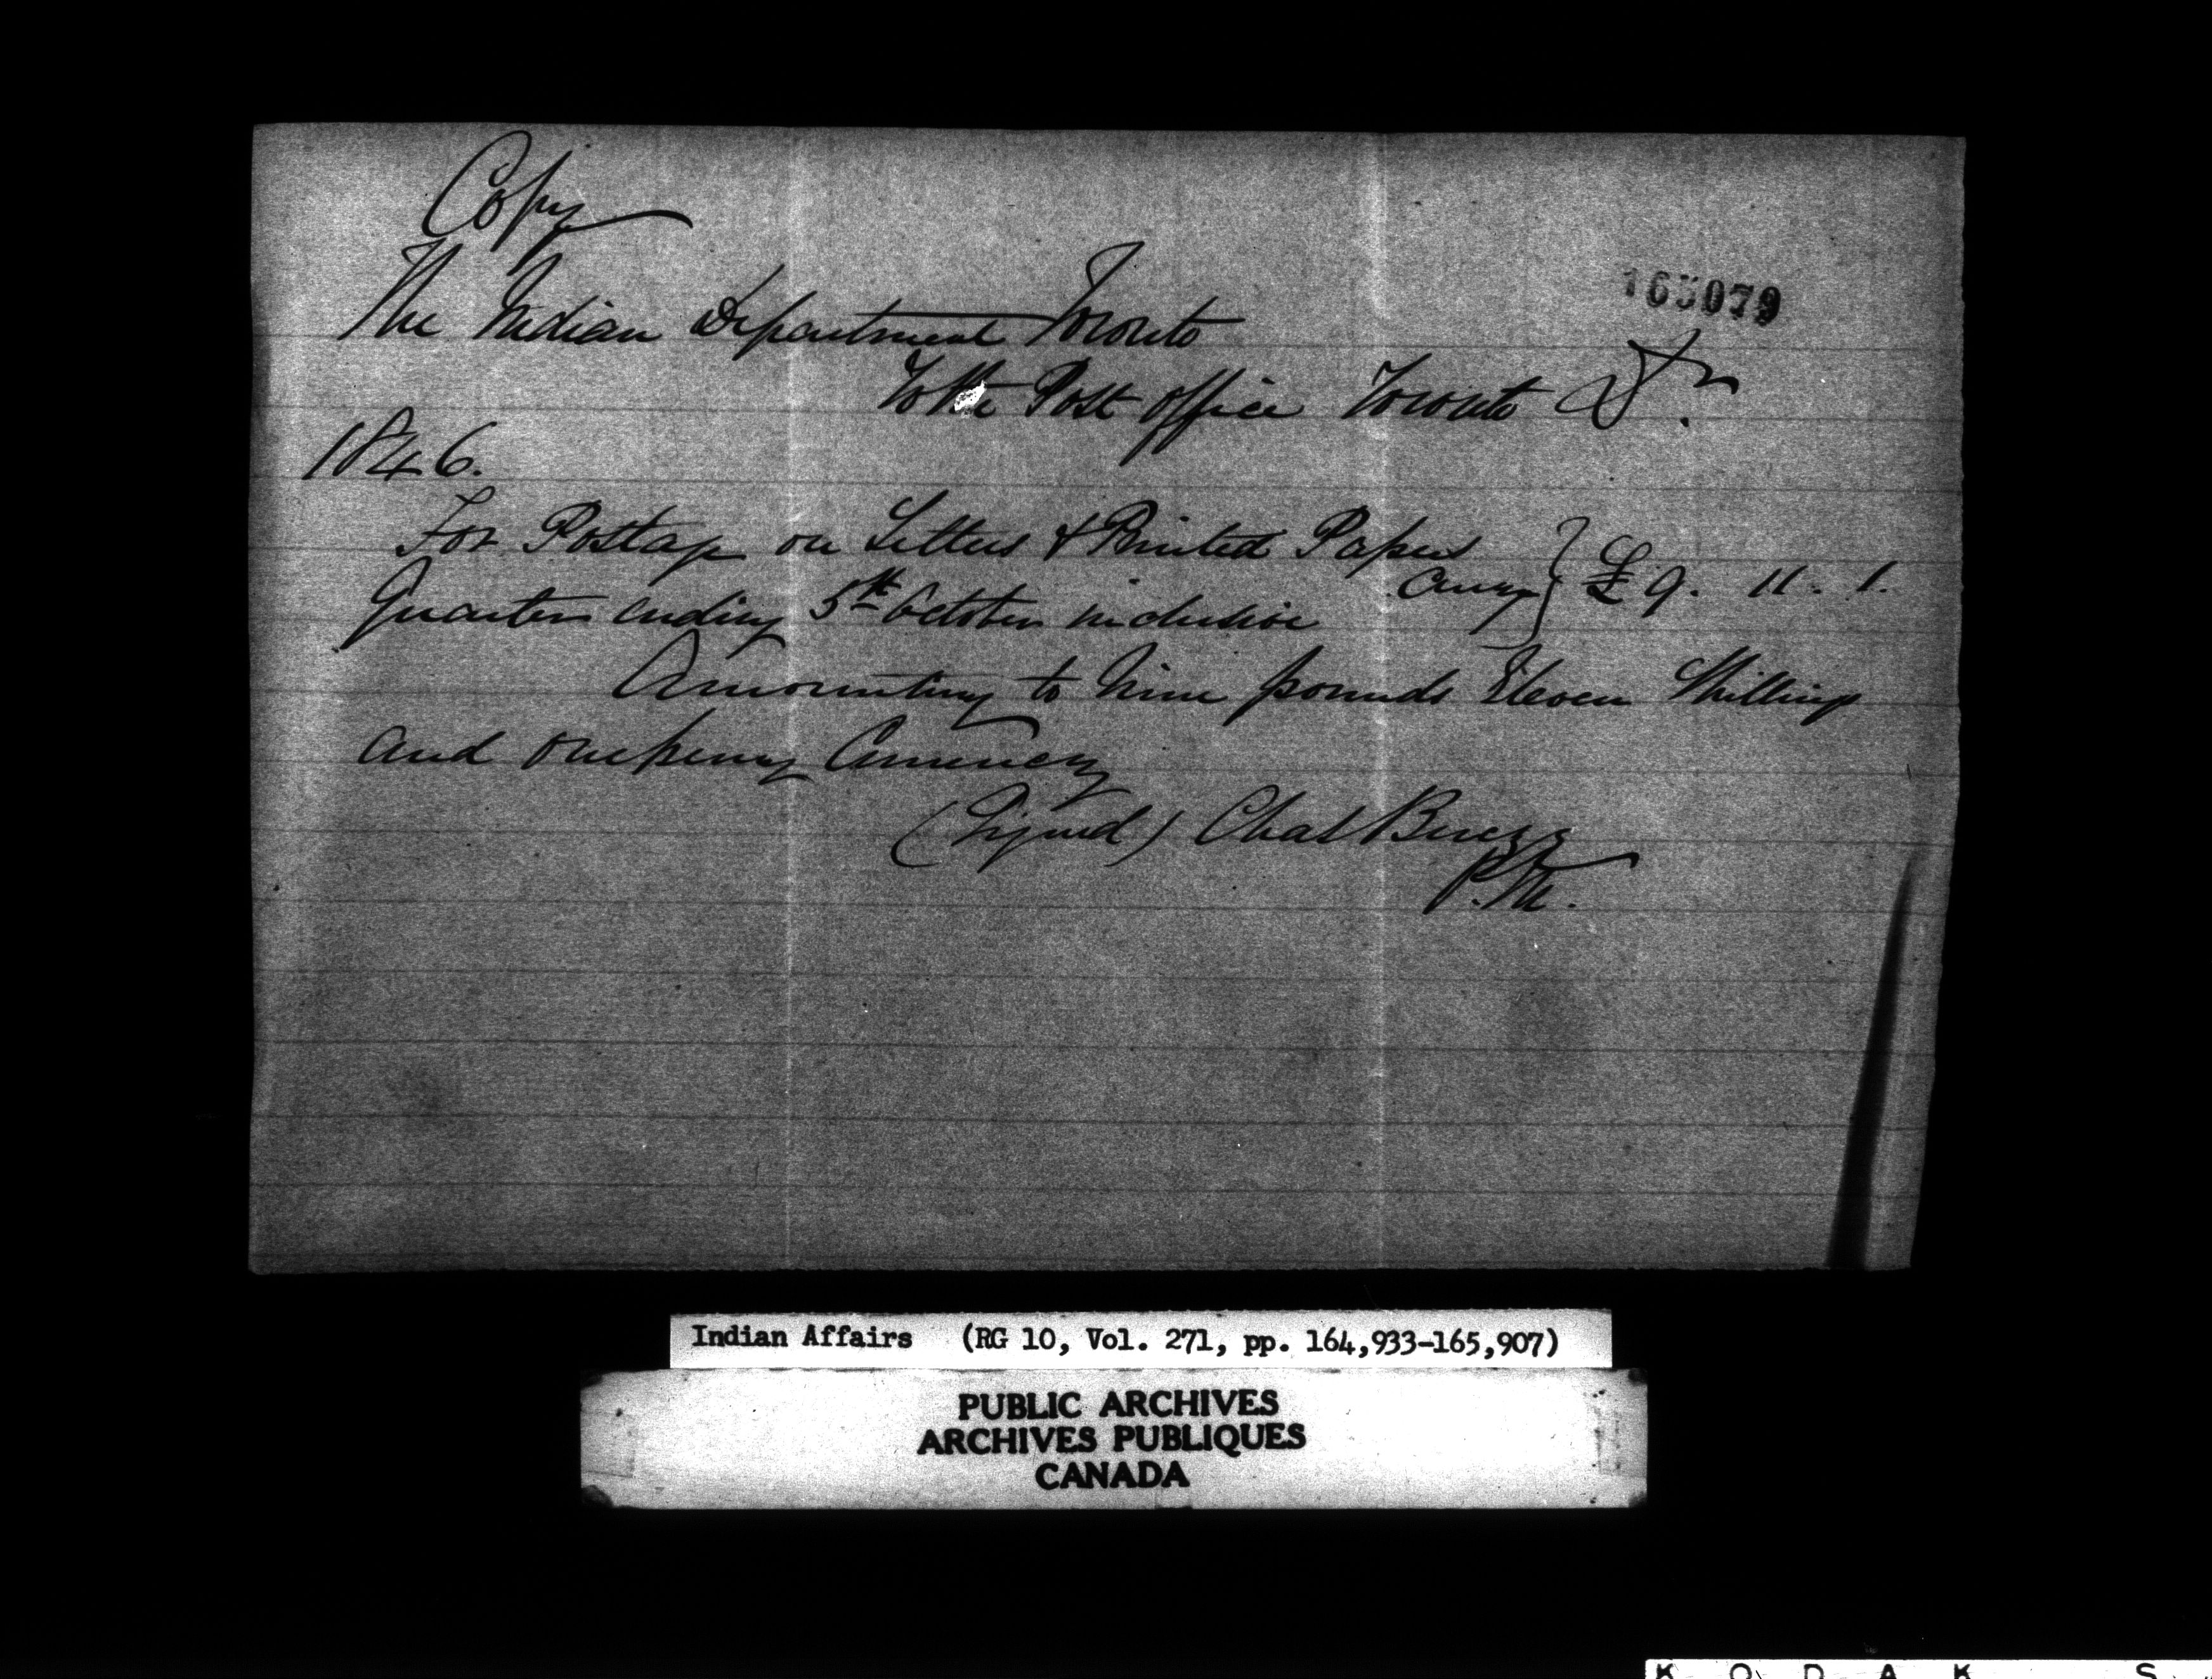 Copy
165079
The Indian Department Toronto
To the Post Office Toronto Dr.
1846.
For Postage on Letters & Printed Papers
Quarter ending 5th October inclusive Curry } £ 9. 11. 1.
Amounting to Nine pounds Eleven Shillings
and one penny Currency
(Signed) Chas Berczy
P.M.
Indian Affairs (RG 10, Vol. 271, pp. 164,933-165,907)
PUBLIC ARCHIVES
ARCHIVES PUBLIQUES
CANADA
K O D A K S